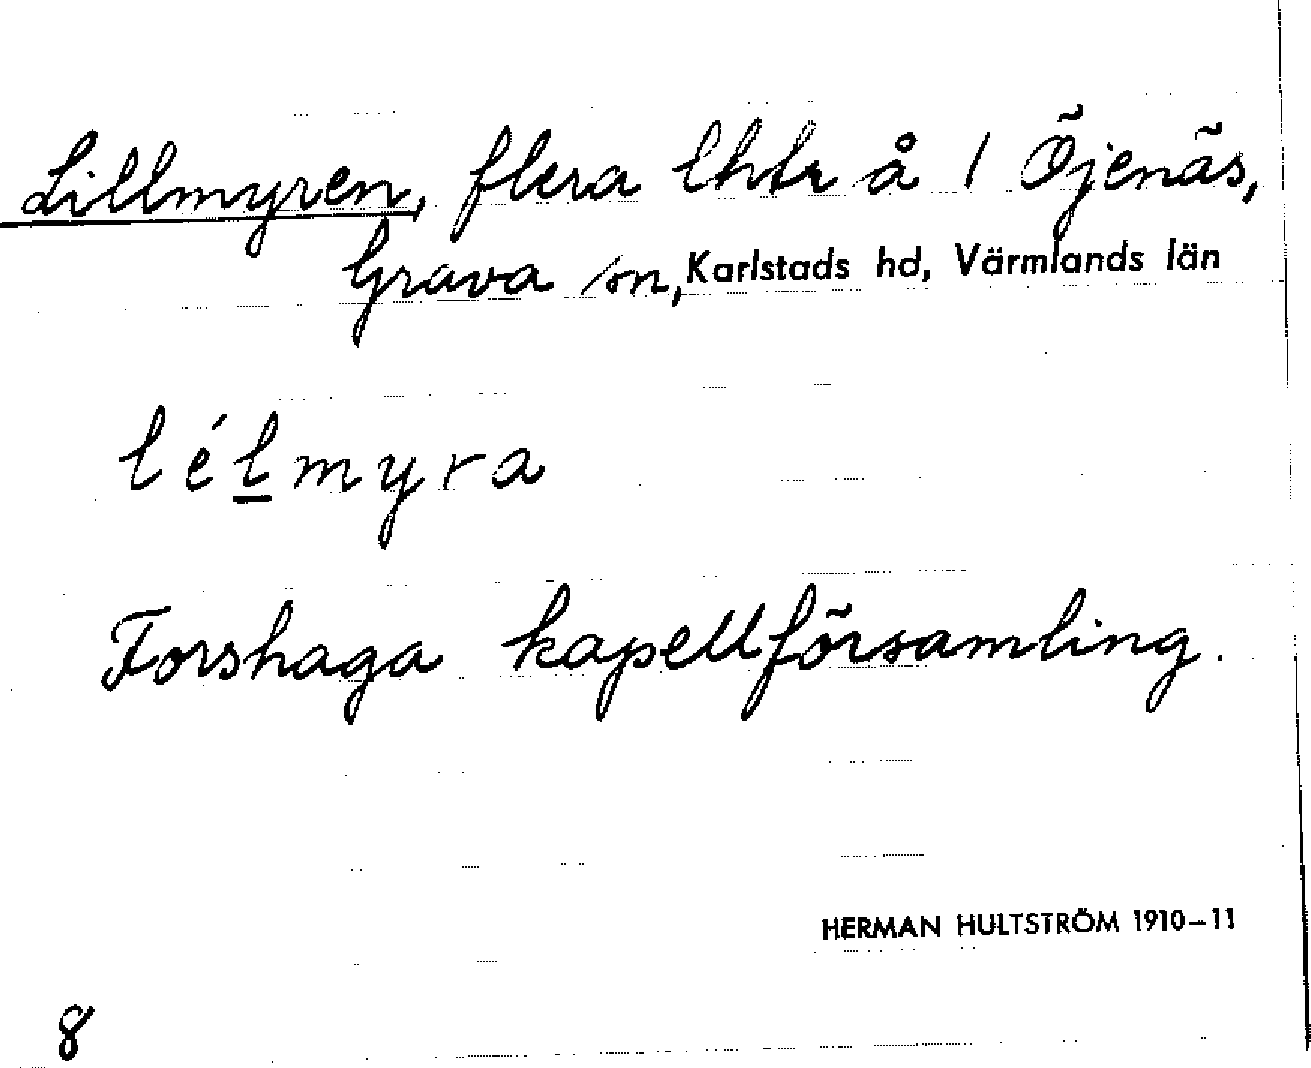 Lillmyren, flera lhtr å 1 Öjenäs,
Grava sn, Karlstads hd, Värmlands län
lélmyra
Forshaga kapellförsamling.
HERMAN HULTSTRÖM 1910–11
8